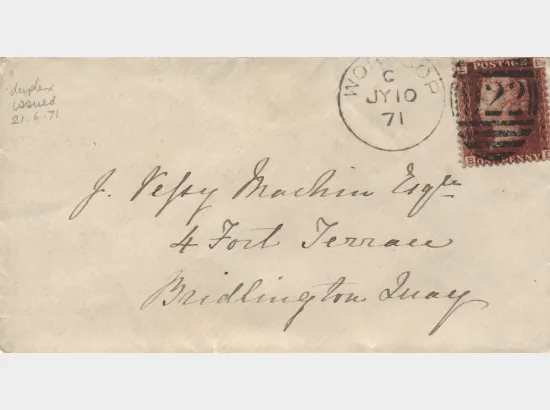 duplex
issued
21.6.71
WORKSOP
C
JY 10
71
POSTAGE
22
ONE PENNY
J. Vessy Machin Esqre
4 Fort Terrace
Bridlington Quay